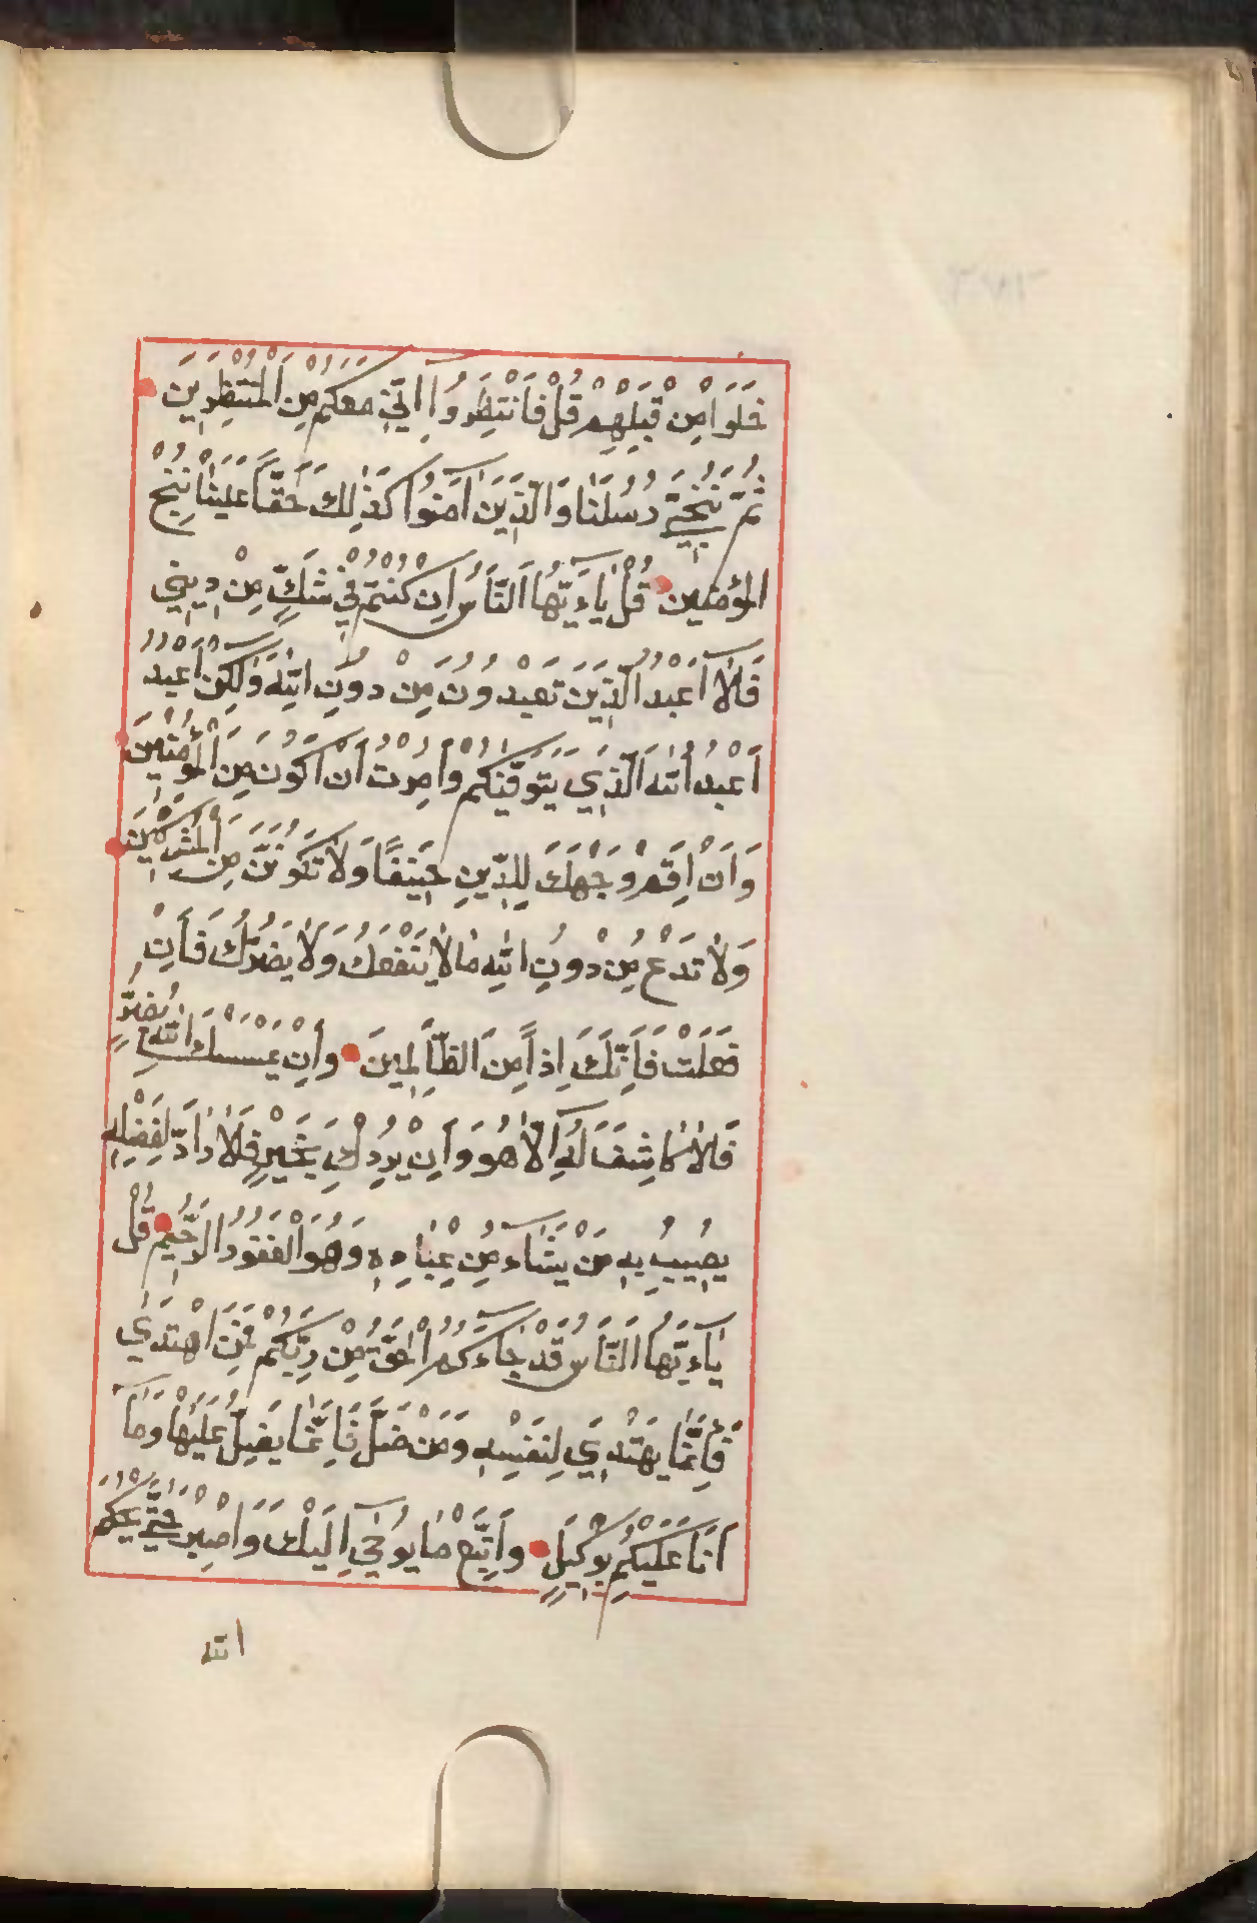 خَلَوْا مِنْ قَبْلِهِمْ قُلْ فَانْتَظِرُوا اِنّٖي مَعَكُمْ مِنَ الْمُنْتَظِرٖينَ
ثُمَّ نُنَجّٖي رُسُلَنَا وَالَّذٖينَ اٰمَنُوا كَذٰلِكَ حَقًّا عَلَيْنَا نُنْجِ
الْمُؤْمِنٖينَ قُلْ يَاءَيُّهَا النَّاسُ اِنْ كُنْتُمْ فٖي شَكٍّ مِنْ دٖينٖي
فَلَا اَعْبُدُ الَّذٖينَ تَعْبُدُونَ مِنْ دُونِ اللّٰهِ وَلٰكِنْ اَعْبُدُ
اَعْبُدُ اللّٰهَ الَّذٖي يَتَوَفّٰيكُمْ وَاُمِرْتُ اَنْ اَكُونَ مِنَ الْمُؤْمِنٖينَ
وَاَنْ اَقِمْ وَجْهَكَ لِلدّٖينِ حَنٖيفًا وَلَا تَكُونَنَّ مِنَ الْمُشْرِكٖينَ
وَلَا تَدْعُ مِنْ دُونِ اللّٰهِ مَا لَا يَنْفَعُكَ وَلَا يَضُرُّكَ فَاِنْ
فَعَلْتَ فَاِنَّكَ اِذًا مِنَ الظَّالِمٖينَ وَاِنْ يَمْسَسْكَ اللّٰهُ بِضُرٍّ
فَلَا كَاشِفَ لَهُ اِلَّا هُوَ وَاِنْ يُرِدْكَ بِخَيْرٍ فَلَا رَادَّ لِفَضْلِهٖ
يُصٖيبُ بِهٖ مَنْ يَشَاءُ مِنْ عِبَادِهٖ وَهُوَ الْغَفُورُ الرَّحٖيمُ قُلْ
يَاءَيُّهَا النَّاسُ قَدْ جَاءَكُمُ الْحَقُّ مِنْ رَبِّكُمْ فَمَنِ اهْتَدٰي
فَاِنَّمَا يَهْتَدٖي لِنَفْسِهٖ وَمَنْ ضَلَّ فَاِنَّمَا يَضِلُّ عَلَيْهَا وَمَا
اَنَا عَلَيْكُمْ بِوَكٖيلٍ وَاتَّبِعْ مَا يُوحٰي اِلَيْكَ وَاصْبِرْ حَتّٰي يَحْكُمَ
الله